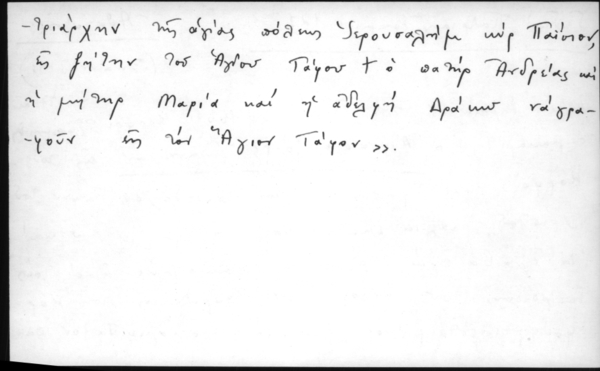 -τριάρχην τῆς ἁγίας πόλεως Ἱερουσαλήμ κύρ Παΐσιον,
εἰς ζήτην τοῦ Ἁγίου Τάφου † ὁ πατήρ Ἀνδρείας καί
ἡ μήτηρ Μαρία καί ἡ ἀδελφή Δράκω νά γρα-
-φοῦν εἰς τόν Ἅγιον Τάφον».